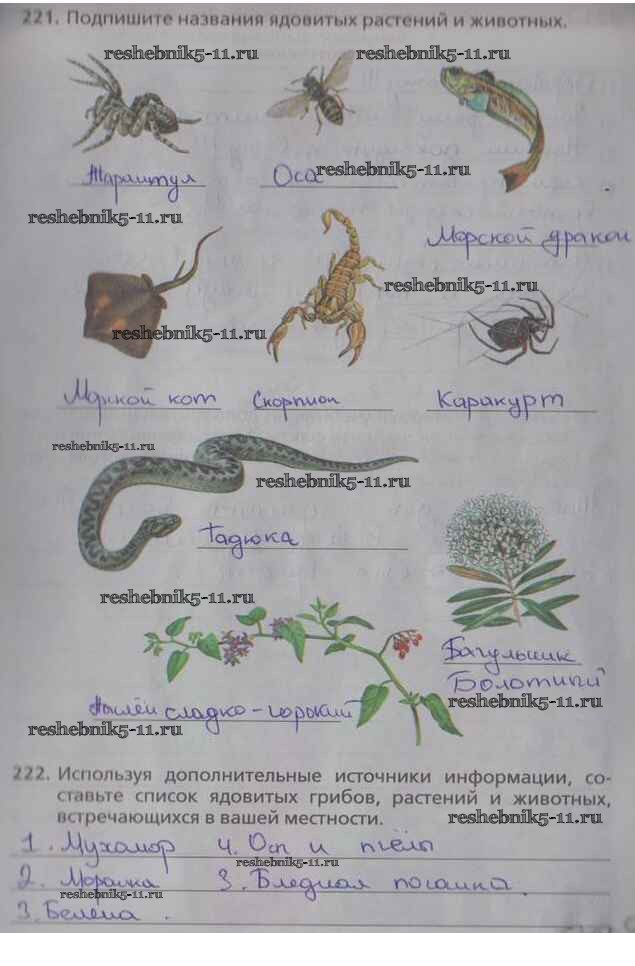 221. Подпишите названия ядовитых растений и животных.
reshebnik5-11.ru reshebnik5-11.ru
reshebnik5-11.ru
Тарантул Оса
reshebnik5-11.ru
Морской дракон
reshebnik5-11.ru
reshebnik5-11.ru
Морской кот Скорпион Каракурт
reshebnik5-11.ru
reshebnik5-11.ru
Гадюка
reshebnik5-11.ru
Багульник
Болотный
reshebnik5-11.ru
Паслён сладко-горький
reshebnik5-11.ru
222. Используя дополнительные источники информации, со-
ставьте список ядовитых грибов, растений и животных,
встречающихся в вашей местности.
reshebnik5-11.ru
1. Мухомор 4. Осы и пчёлы
reshebnik5-11.ru
2. 3. Бледная поганка.
reshebnik5-11.ru
3. Белена.